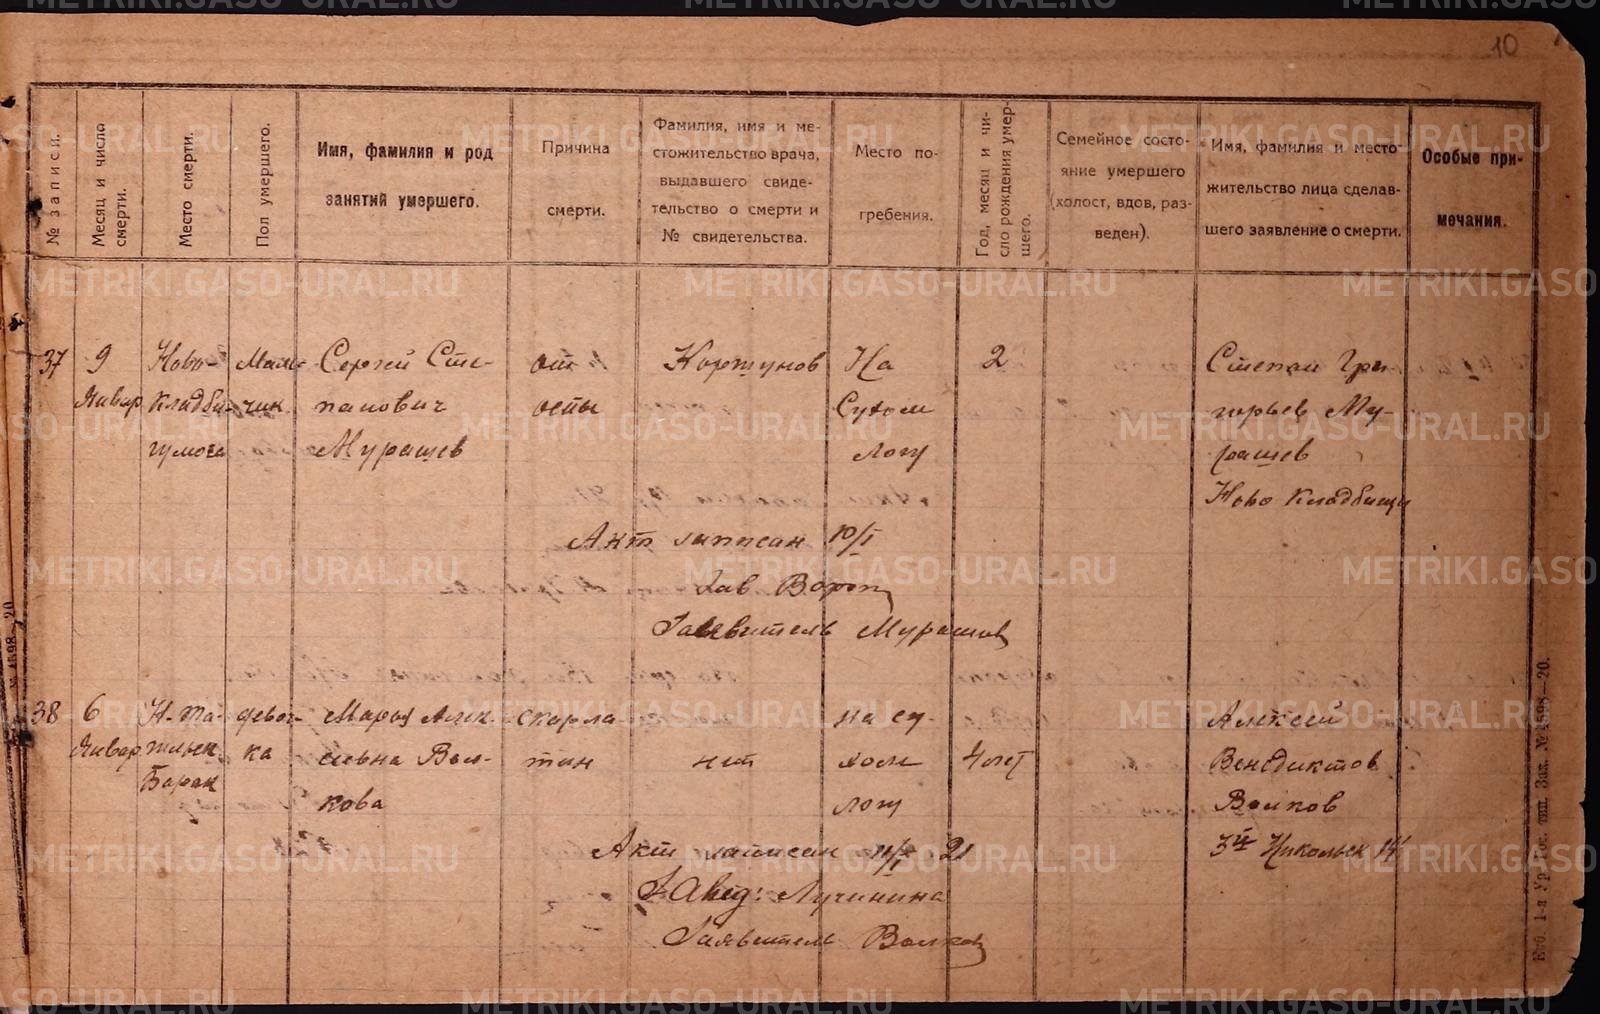 10
№ записи.
Месяц и число смерти.
Место смерти.
Пол умершего.
Имя, фамилия и род занятий умершего.
Причина смерти.
Фамилия, имя и ме-
стожительство врача,
выдавшего свиде-
тельство о смерти и
№ свидетельства.
Место по-
гребения.
Год, месяц и чи-
сло рождения умер-
шего.
Семейное состо-
яние умершего
(холост, вдов, раз-
веден).
Имя, фамилия и место-
жительство лица сделав-
шего заявление о смерти.
Особые при-
мечания.
37
9
Январ
Ново-
кладби-
Маль-
чик
Сергей Сте-
панович
Мурашев
от
оспы
Коржунов
На
Сухом
логу
2
Степан Гри-
горьев Му-
рашев
Ново Кладбищ
Акт записан 10/I
Зав Ворон
Заявитель Мурашов
38
6
Январ
Н-Та-
Барак
девоч-
ка
Мария Алек-
сеевна Вол-
кова
скарла-
тин
нет
на су-
хом
логу
4 лет
Алексей
Венедиктов
Волков
3й Никольск 14
Акт записан 11/I 21
Завед: Лучинина
Заявитель Волков
№ 4598—20
Екб. 1-я Ур. Гос. тип. Зак. № 4598—20.
METRIKI.GASO-URAL.RU